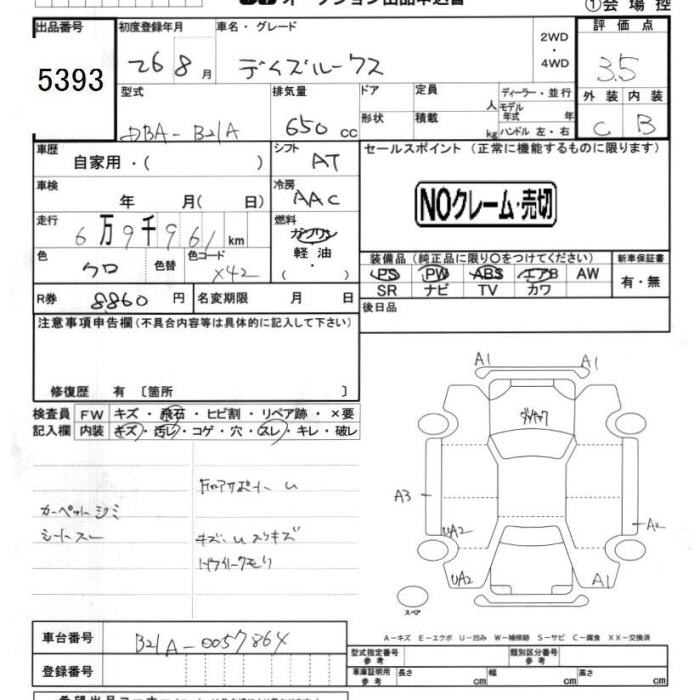 オークション出品申込書 ①会場控
出品番号 初度登録年月 車名・グレード 2WD・4WD 評価点
5393 26 8月 デイズルークス 3.5
型式 排気量 ドア 定員 人 ディーラー・並行 外装 内装
DBA-B21A 650 cc 形状 積載 kg モデル年式 年 ハンドル 左・右 C B
車歴 自家用・( ) シフト AT セールスポイント (正常に機能するものに限ります)
車検 年 月(日) 冷房 AAC NOクレーム・売切
走行 6万9千961km 燃料 ガソリン 軽油・( )
色 クロ 色替 色コード X42 装備品(純正品に限り○をつけてください) 新車保証書
PS PW ABS エアB AW 有・無
SR ナビ TV カワ
R券 8860円 名変期限 月 日 後日品
注意事項申告欄(不具合内容等は具体的に記入して下さい)
修復歴 有 〔箇所 〕
検査員 FW キズ・飛石・ヒビ割・リペア跡・×要
記入欄 内装 キズ・汚レ・コゲ・穴・スレ・キレ・破レ
カーペットシミ
シートスレ
A1 A1
A3 UA2 A2
UA2 A1
スペア
A-キズ E-エクボ U-凹み W-補修跡 S-サビ C-腐食 XX-交換済
車台番号 B21A-0057864
登録番号
型式指定番号 参考 類別区分番号 参考
車庫証明用 参考 長さ cm 幅 cm 高さ cm